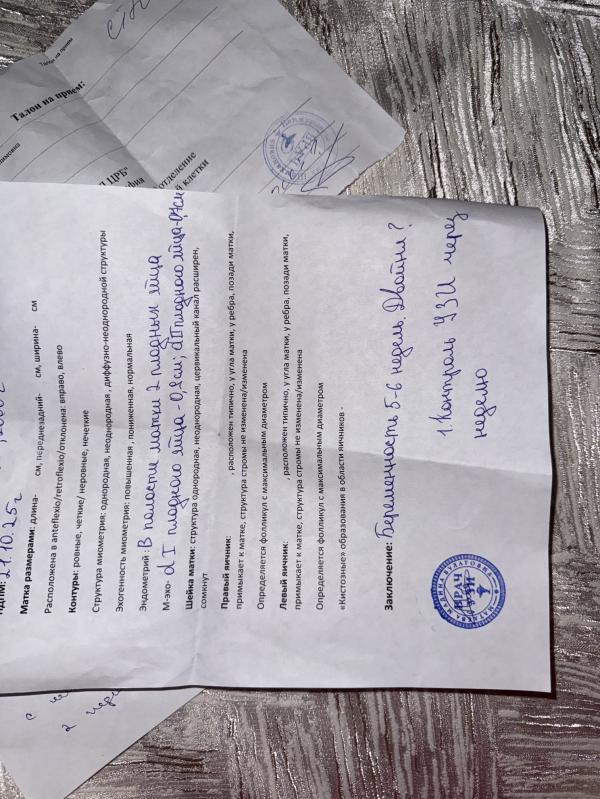 Талон на прием
Талон на прием:
ЦРБ"
отделение
клетки
21.10.25г
Матка размерами: длина- см, переднезадний- см, ширина- см
Расположена в anteflexio/retroflexio/отклонена: вправо, влево
Контуры: ровные, четкие/ неровные, нечеткие
Структура миометрия: однородная, неоднородная , диффузно-неоднородной структуры
Эхогенность миометрия: повышенная , пониженная, нормальная
Эндометрий : В полости матки 2 плодных яйца
М-эхо- d I плодного яйца - ; d II плодного яйца-
Шейка матки: структура однородная, неоднородная, цервикальный канал расширен,
сомкнут
Правый яичник: , расположен типично, у угла матки, у ребра, позади матки,
примыкает к матке, структура стромы не изменена/изменена
Определяется фолликул с максимальным диаметром
Левый яичник: , расположен типично, у угла матки, у ребра, позади матки,
примыкает к матке, структура стромы не изменена/изменена
Определяется фолликул с максимальным диаметром
«Кистозные» образования в области яичников -
Заключение: Беременность 5-6 недель. Двойня?
1. Контроль УЗИ через
неделю
ВРАЧ